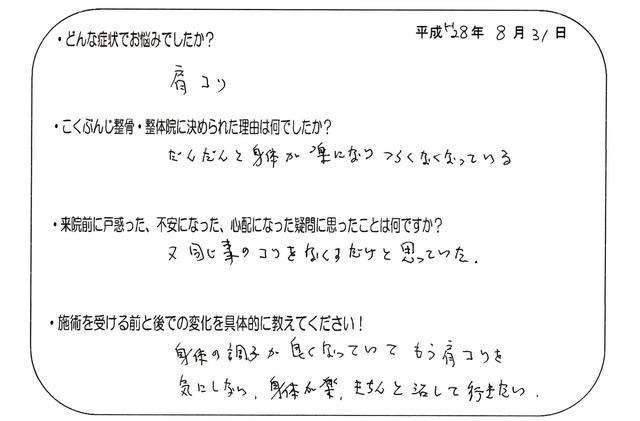 平成28年 8月31日
・どんな症状でお悩みでしたか？
肩コリ
・こくぶんじ整骨・整体院に決められた理由は何でしたか？
だんだんと身体が楽になり つらくなくなっている
・来院前に戸惑った、不安になった、心配になった疑問に思ったことは何ですか？
又同じ事のコリをなくすだけと思っていた.
・施術を受ける前と後での変化を具体的に教えてください！
身体の調子が良くなっていて もう肩コリを
気にしない、身体が楽、きちんと治して行きたい.